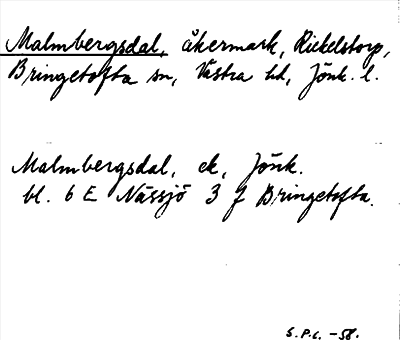 Malmbergsdal, åkermark, Rickelstorp,
Bringetofta sn, Västra hd, Jönk. l.
Malmbergsdal, ek, Jönk.
bl. 6 E Nässjö 3 f Bringetofta.
S.P.L. -58.